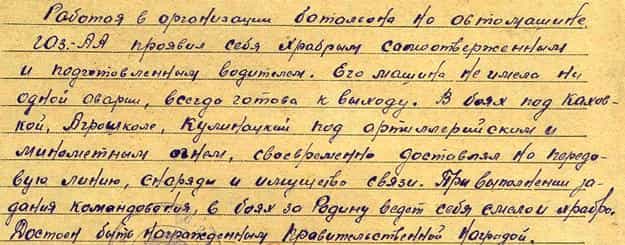 Работая в организации батальона на автомашине
ГАЗ-АА проявил себя храбрым самоотверженным
и подготовленным водителем. Его машина не имела ни
одной аварии, всегда готова к выходу. В боях под Кахов-
кой, Агрошколе, Кулинацкий под артиллерийским и
минометным огнем, своевременно доставлял на передо-
вую линию, снаряды и имущество связи. При выполнении за-
дания командования, в боях за Родину ведет себя смело и храбро.
Достоен быть награжденным правительственной наградой.